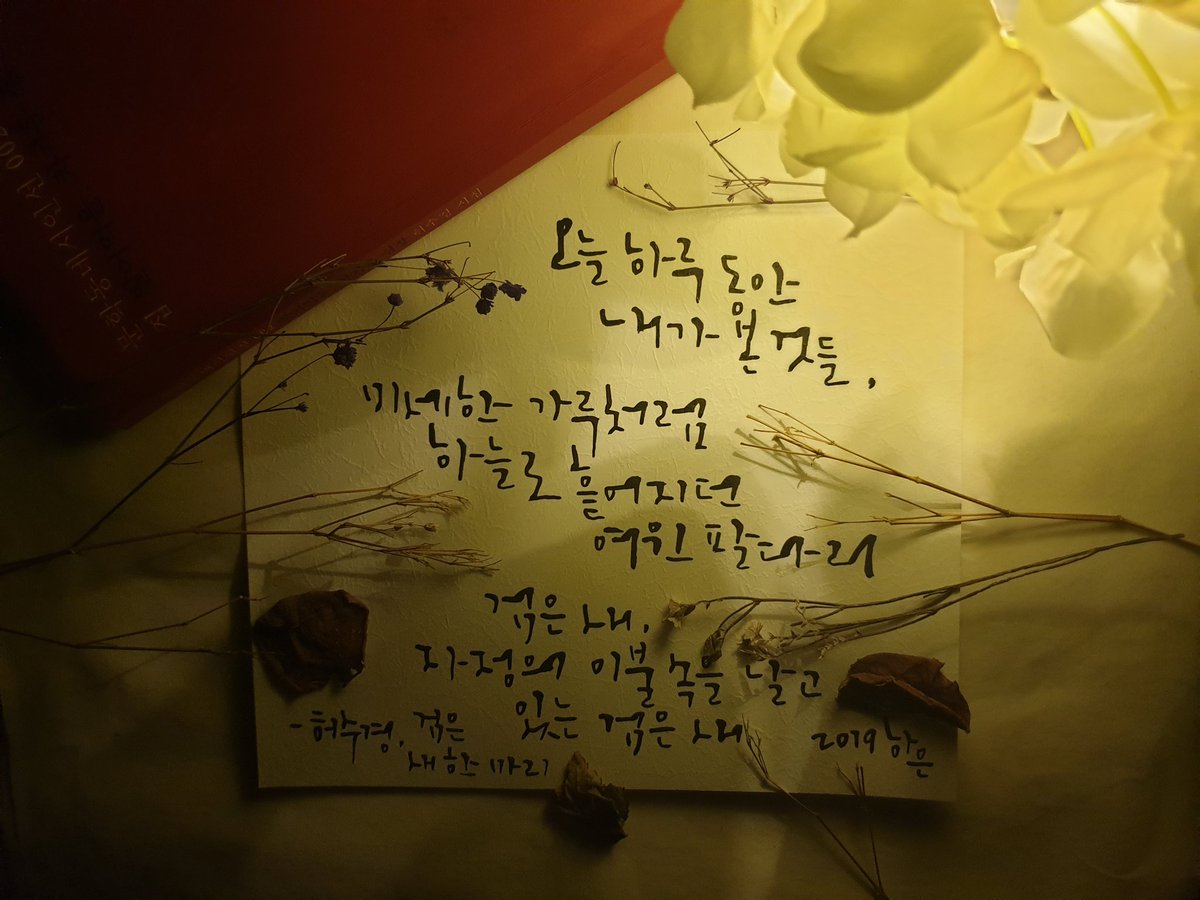 오늘 하루 동안
내가 본 것들,
미세한 가루처럼
하늘로 흩어지던
여윈 팔다리
검은 새,
자정의 이불 속을 날고
있는 검은 새
-허수경, 검은
새 한 마리
2019 하은